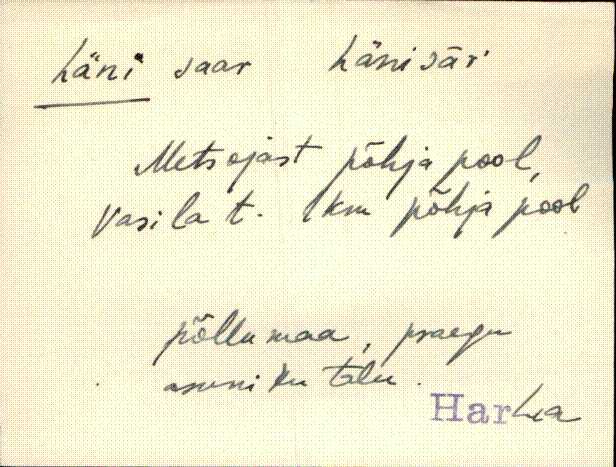 Läni saar Länisār
Metsojast põhja pool,
Vasila t. 1 km põhja pool
põllumaa, praegu
asuniku talu.
Harku